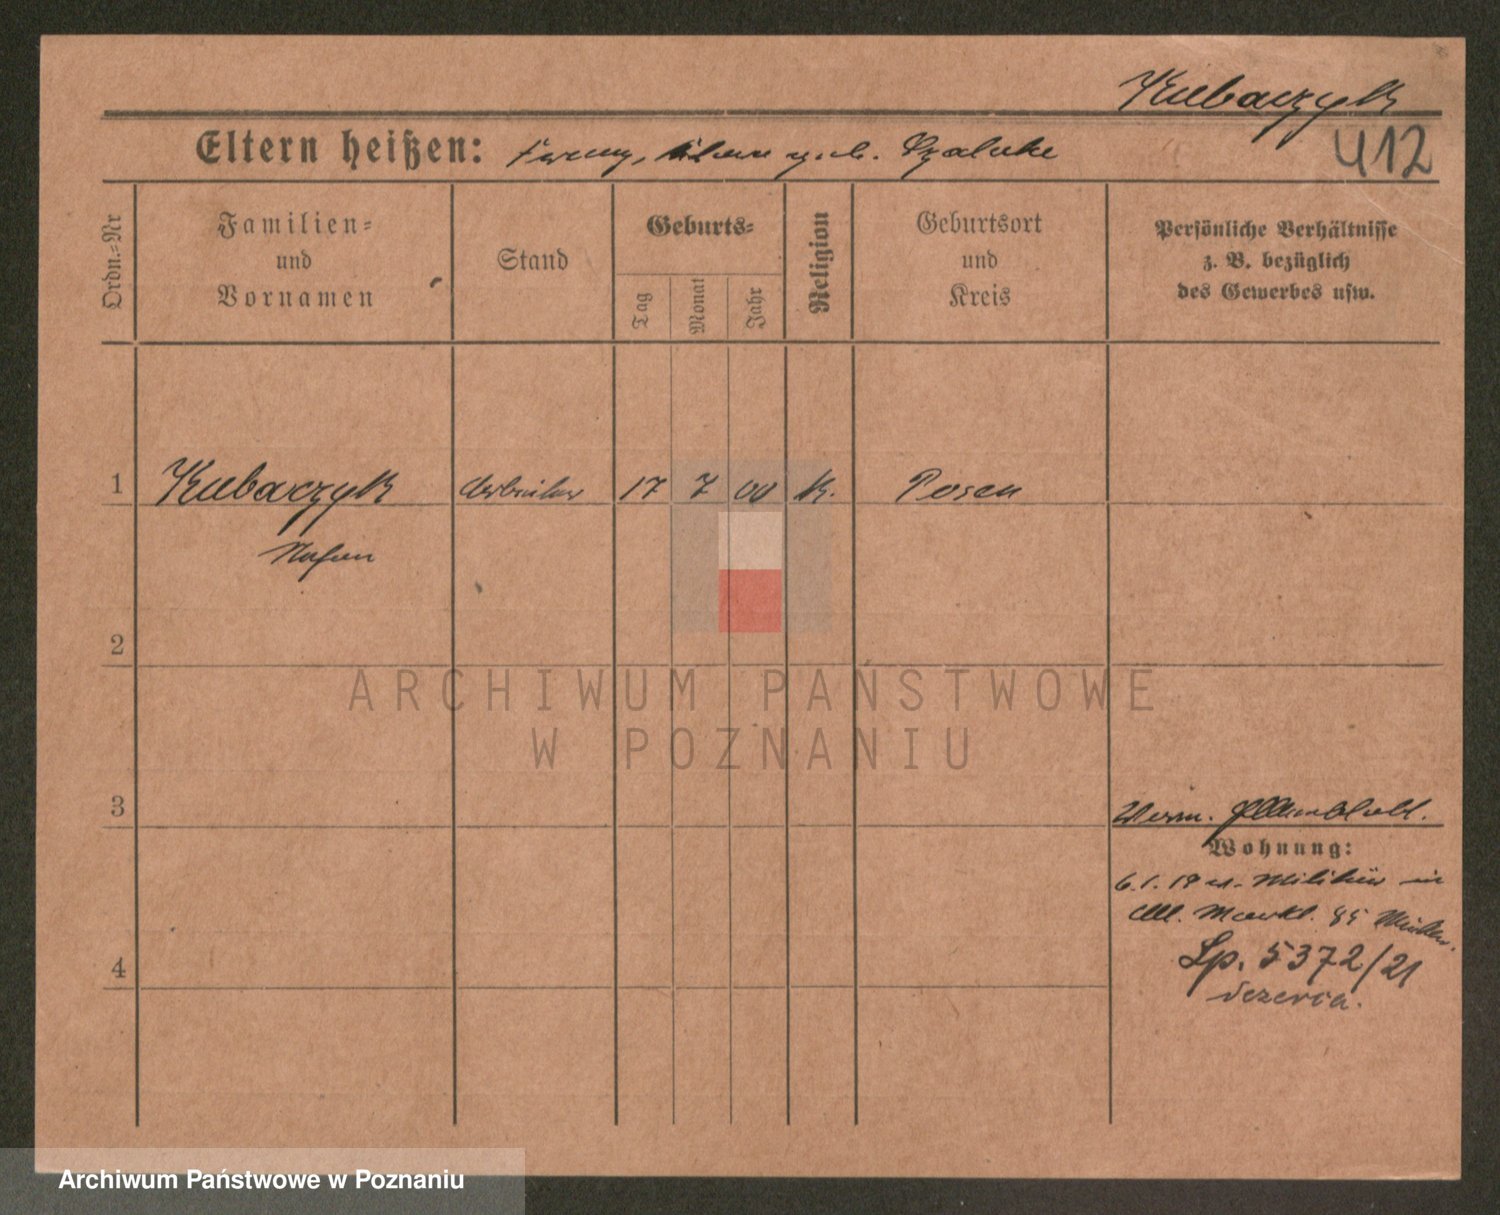 Kubaczyk
Eltern heißen: geb.
412
Ordn.-Nr
Familien-
und
Vornamen
Stand
Geburts-
Tag
Monat
Jahr
Religion
Geburtsort
und
Kreis
Persönliche Verhältnisse
z. B. bezüglich
des Gewerbes usw.
1 Kubaczyk Arbeiter 17 7 00 K. Posen
2
3
Wohnung:
6.1.19 Militär in
Markt. 85
Sp. 5372/21
4
ARCHIWUM PAŃSTWOWE
W POZNANIU
Archiwum Państwowe w Poznaniu